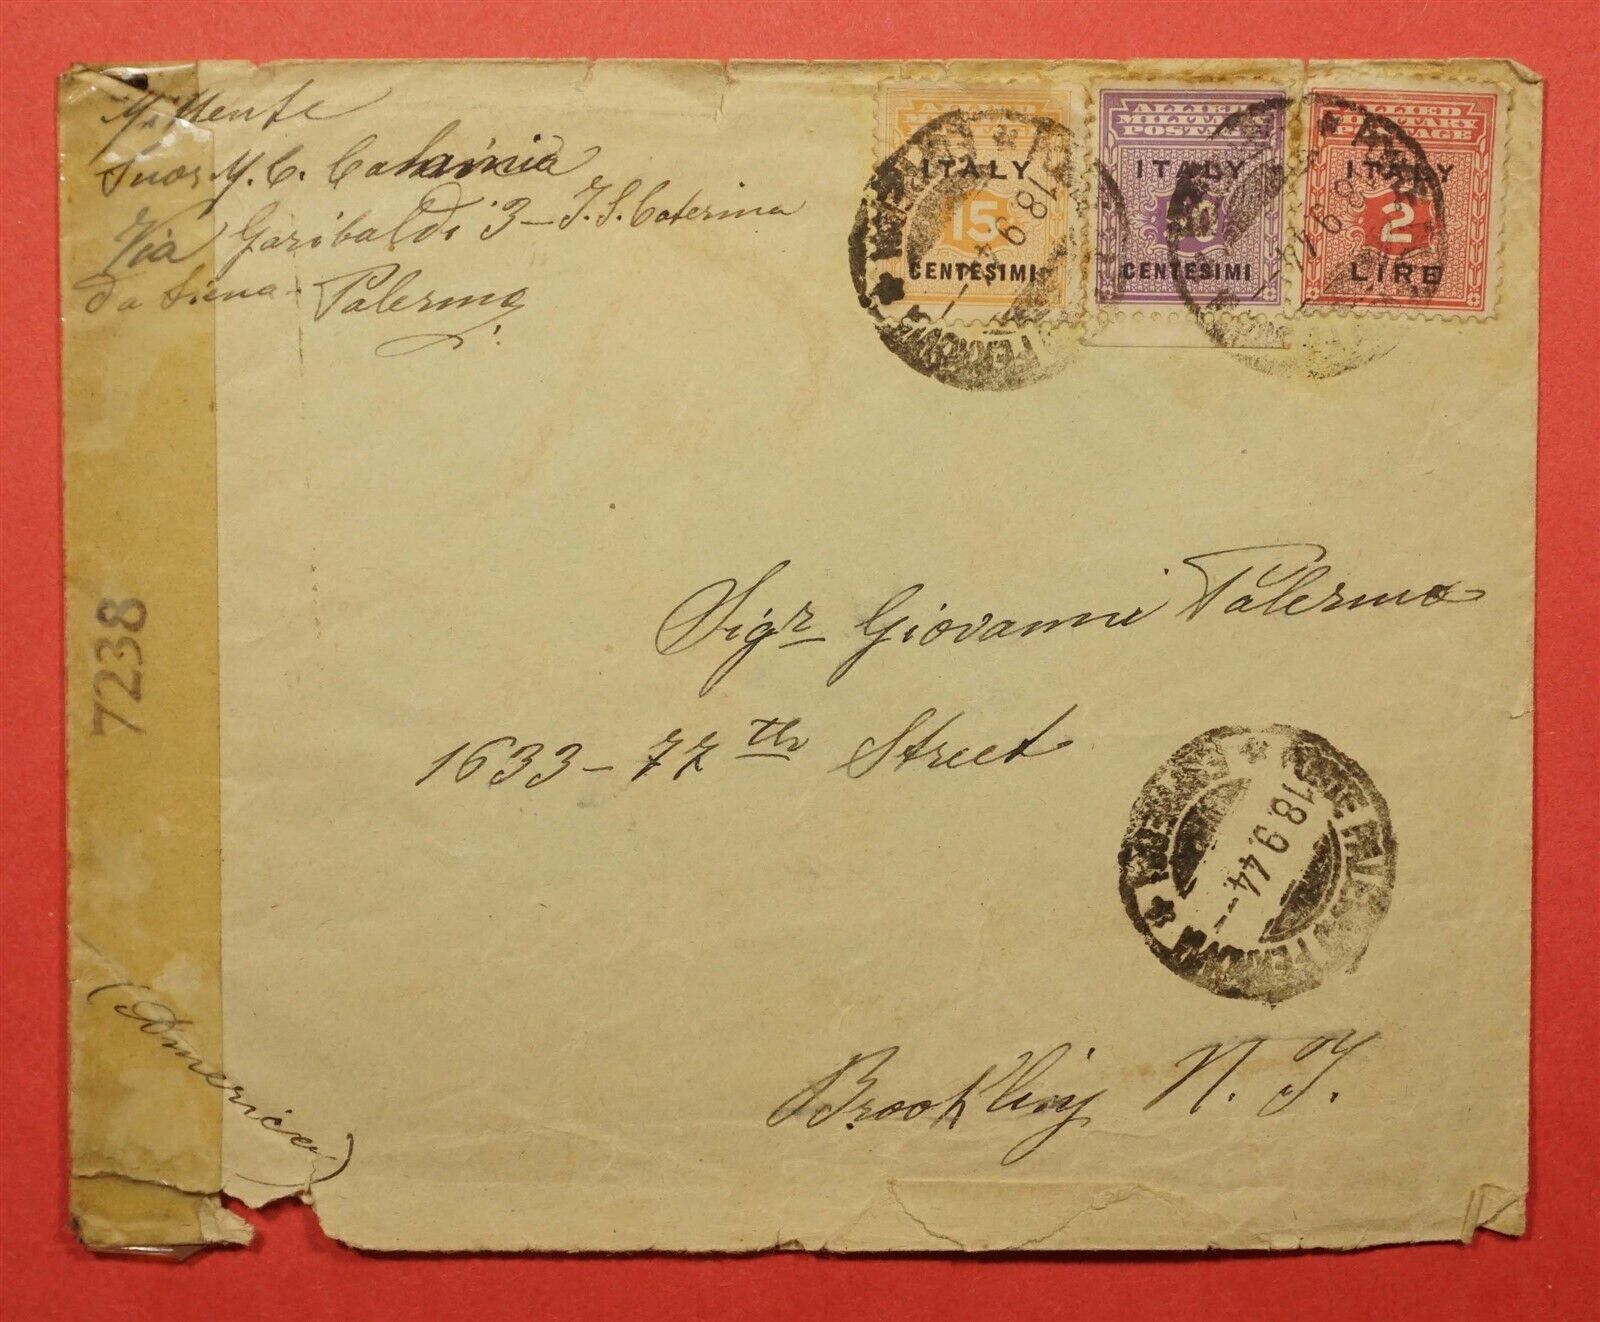 M. Mente
Suor M. C. Catamia
Via Garibaldi 3 - I. S. Caterina
da Siena - Palermo
ALLIED
MILITARY
POSTAGE
ITALY
15
CENTESIMI
ALLIED
MILITARY
POSTAGE
ITALY
50
CENTESIMI
ALLIED
MILITARY
POSTAGE
ITALY
2
LIRE
18.9.44
18.9.44
7238
Sigr Giovanni Palermo
1633 - 77th Street
18.9.44
Brooklin N. Y.
(America)